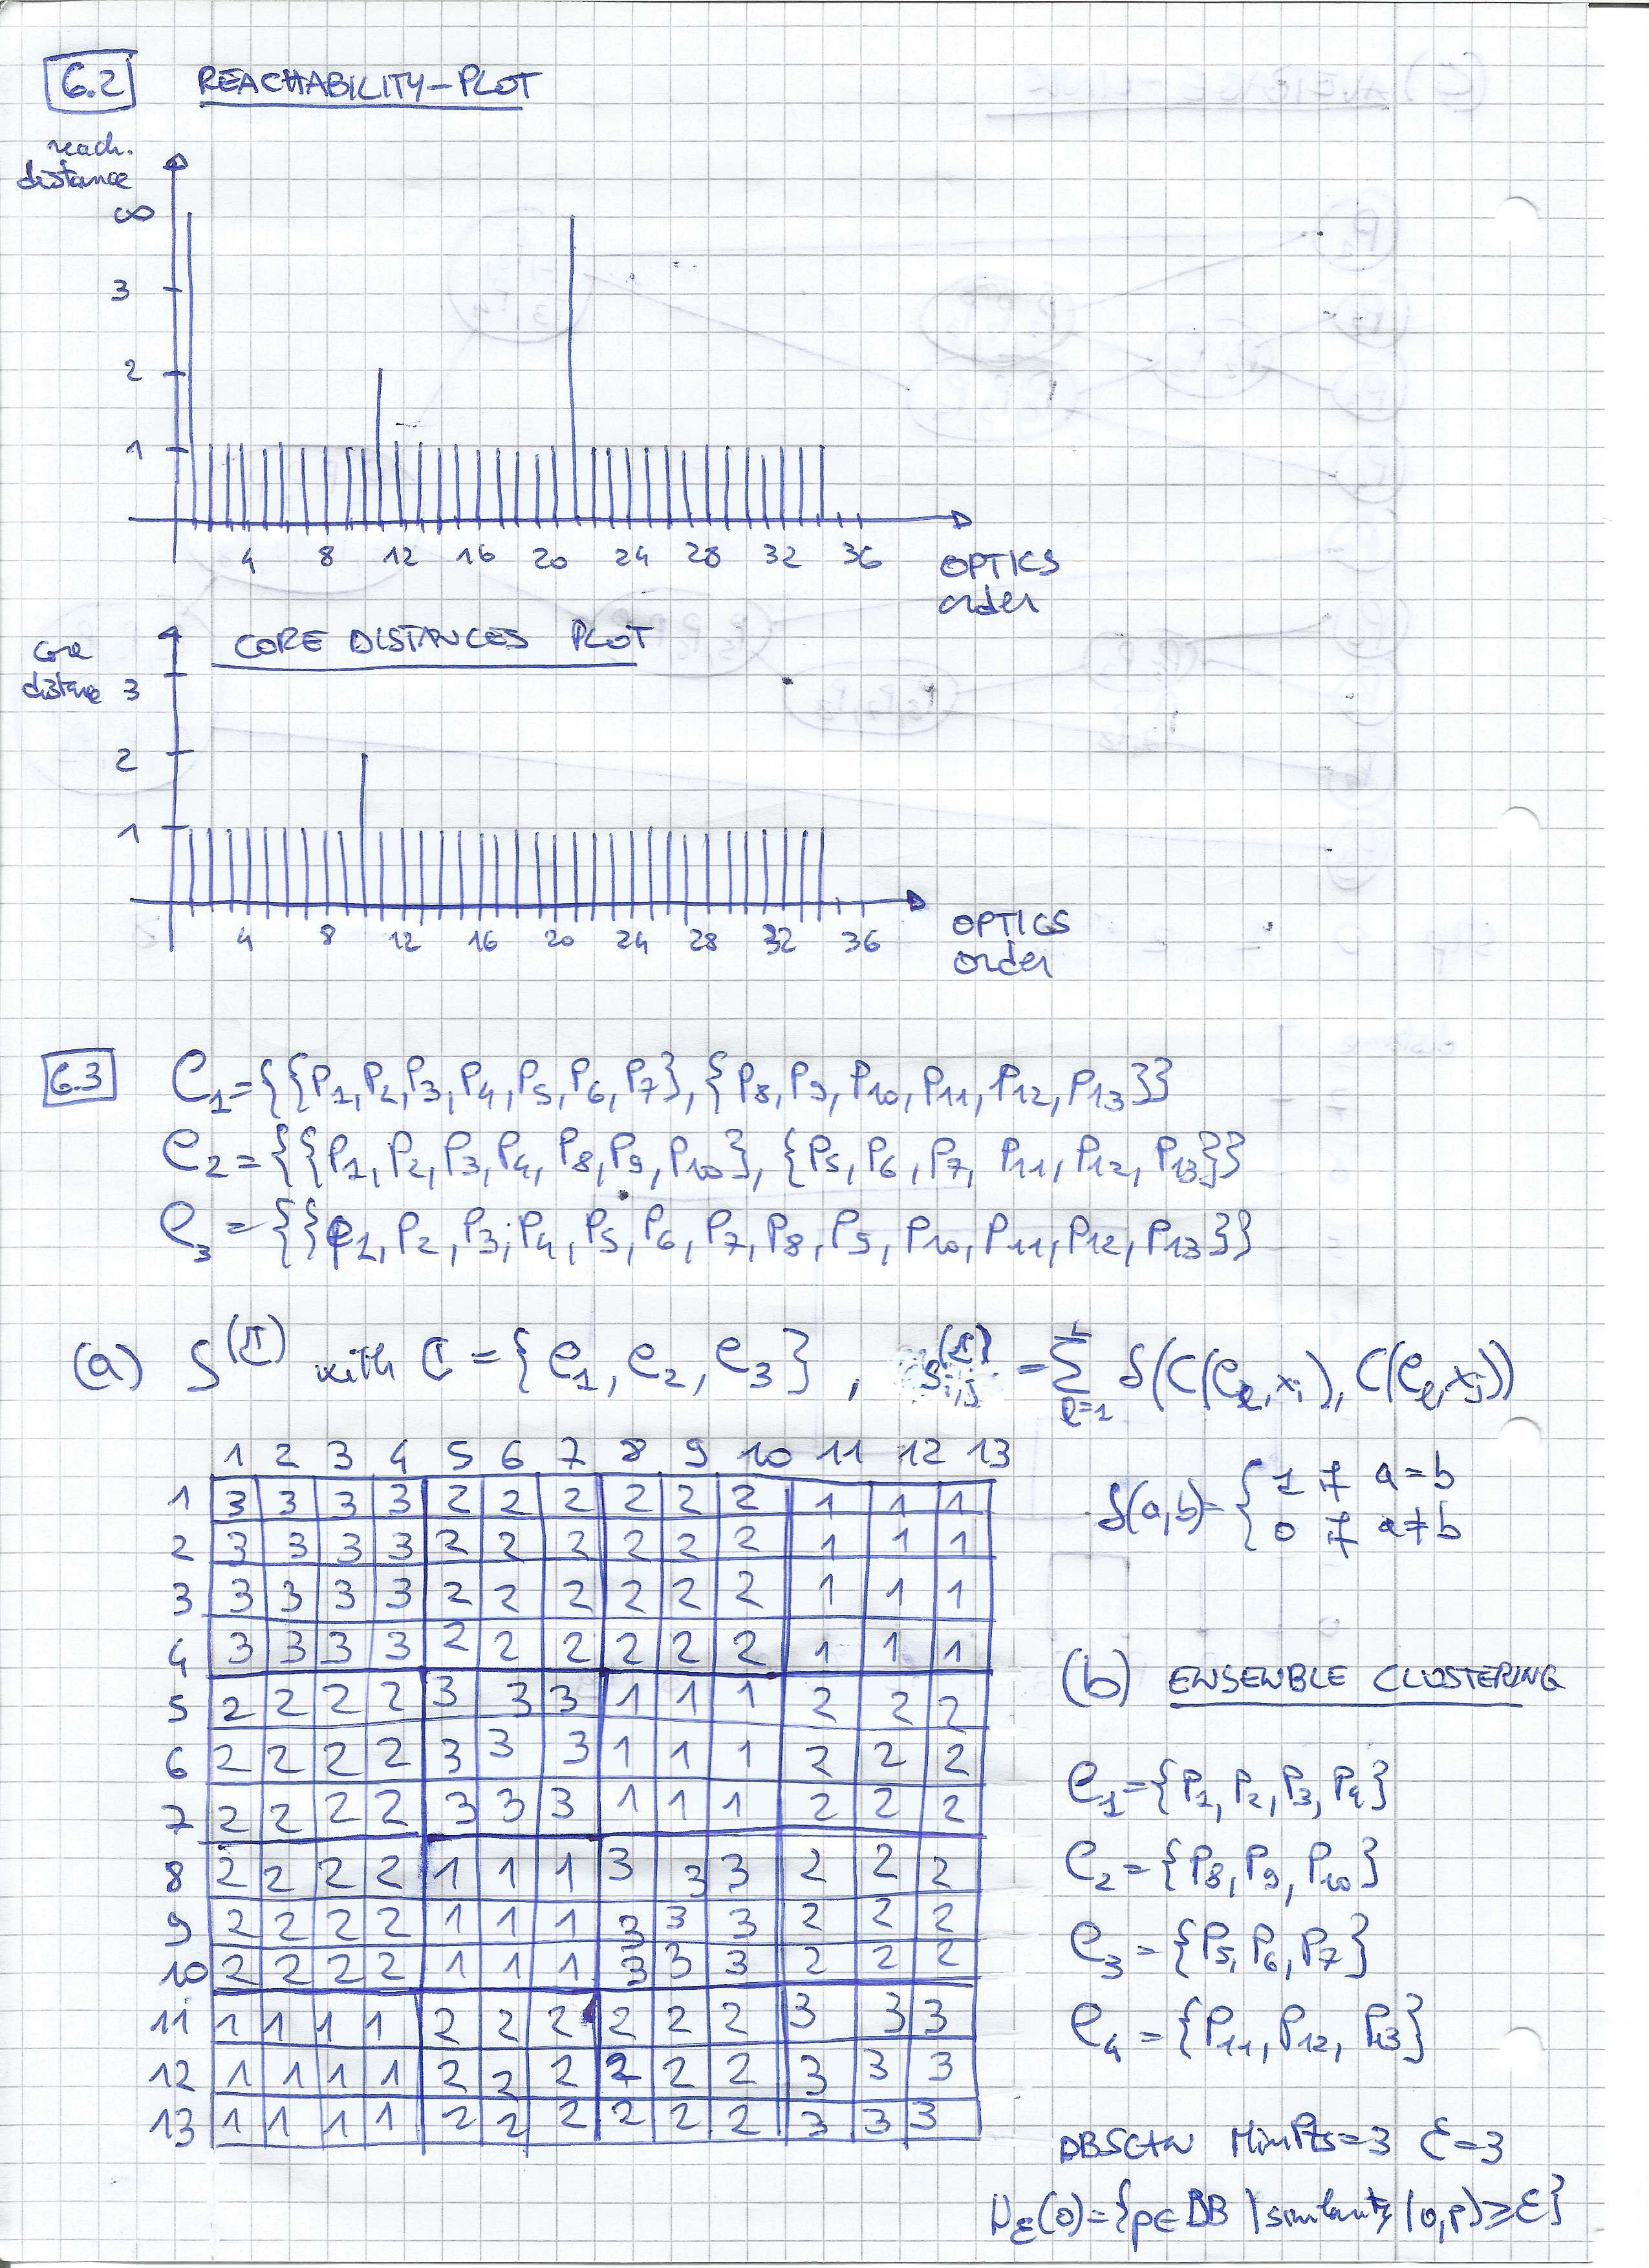 6.2 REACHABILITY-PLOT
reach.
distance
∞
3
2
1
4 8 12 16 20 24 28 32 36
OPTICS
order
CORE DISTANCES PLOT
Core
distance 3
2
1
4 8 12 16 20 24 28 32 36
OPTICS
order
6.3 C1={{P1,P2,P3,P4,P5,P6,P7},{P8,P9,P10,P11,P12,P13}}
C2={{P1,P2,P3,P4,P8,P9,P10},{P5,P6,P7,P11,P12,P13}}
C3={{P1,P2,P3,P4,P5,P6,P7,P8,P9,P10,P11,P12,P13}}
(a) S(ℂ) with ℂ={C1,C2,C3}, si,j(ℂ)=∑l=1L δ(C(Cl,xi),C(Cl,xj))
δ(a,b)={1 if a=b
0 if a≠b
1 2 3 4 5 6 7 8 9 10 11 12 13
1 3 3 3 3 2 2 2 2 2 2 1 1 1
2 3 3 3 3 2 2 2 2 2 2 1 1 1
3 3 3 3 3 2 2 2 2 2 2 1 1 1
4 3 3 3 3 2 2 2 2 2 2 1 1 1
5 2 2 2 2 3 3 3 1 1 1 2 2 2
6 2 2 2 2 3 3 3 1 1 1 2 2 2
7 2 2 2 2 3 3 3 1 1 1 2 2 2
8 2 2 2 2 1 1 1 3 3 3 2 2 2
9 2 2 2 2 1 1 1 3 3 3 2 2 2
10 2 2 2 2 1 1 1 3 3 3 2 2 2
11 1 1 1 1 2 2 2 2 2 2 3 3 3
12 1 1 1 1 2 2 2 2 2 2 3 3 3
13 1 1 1 1 2 2 2 2 2 2 3 3 3
(b) ENSEMBLE CLUSTERING
C1={P1,P2,P3,P4}
C2={P8,P9,P10}
C3={P5,P6,P7}
C4={P11,P12,P13}
DBSCAN MinPts=3 ε=3
Nε(o)={p∈DB | similarity(o,p)≥ε}